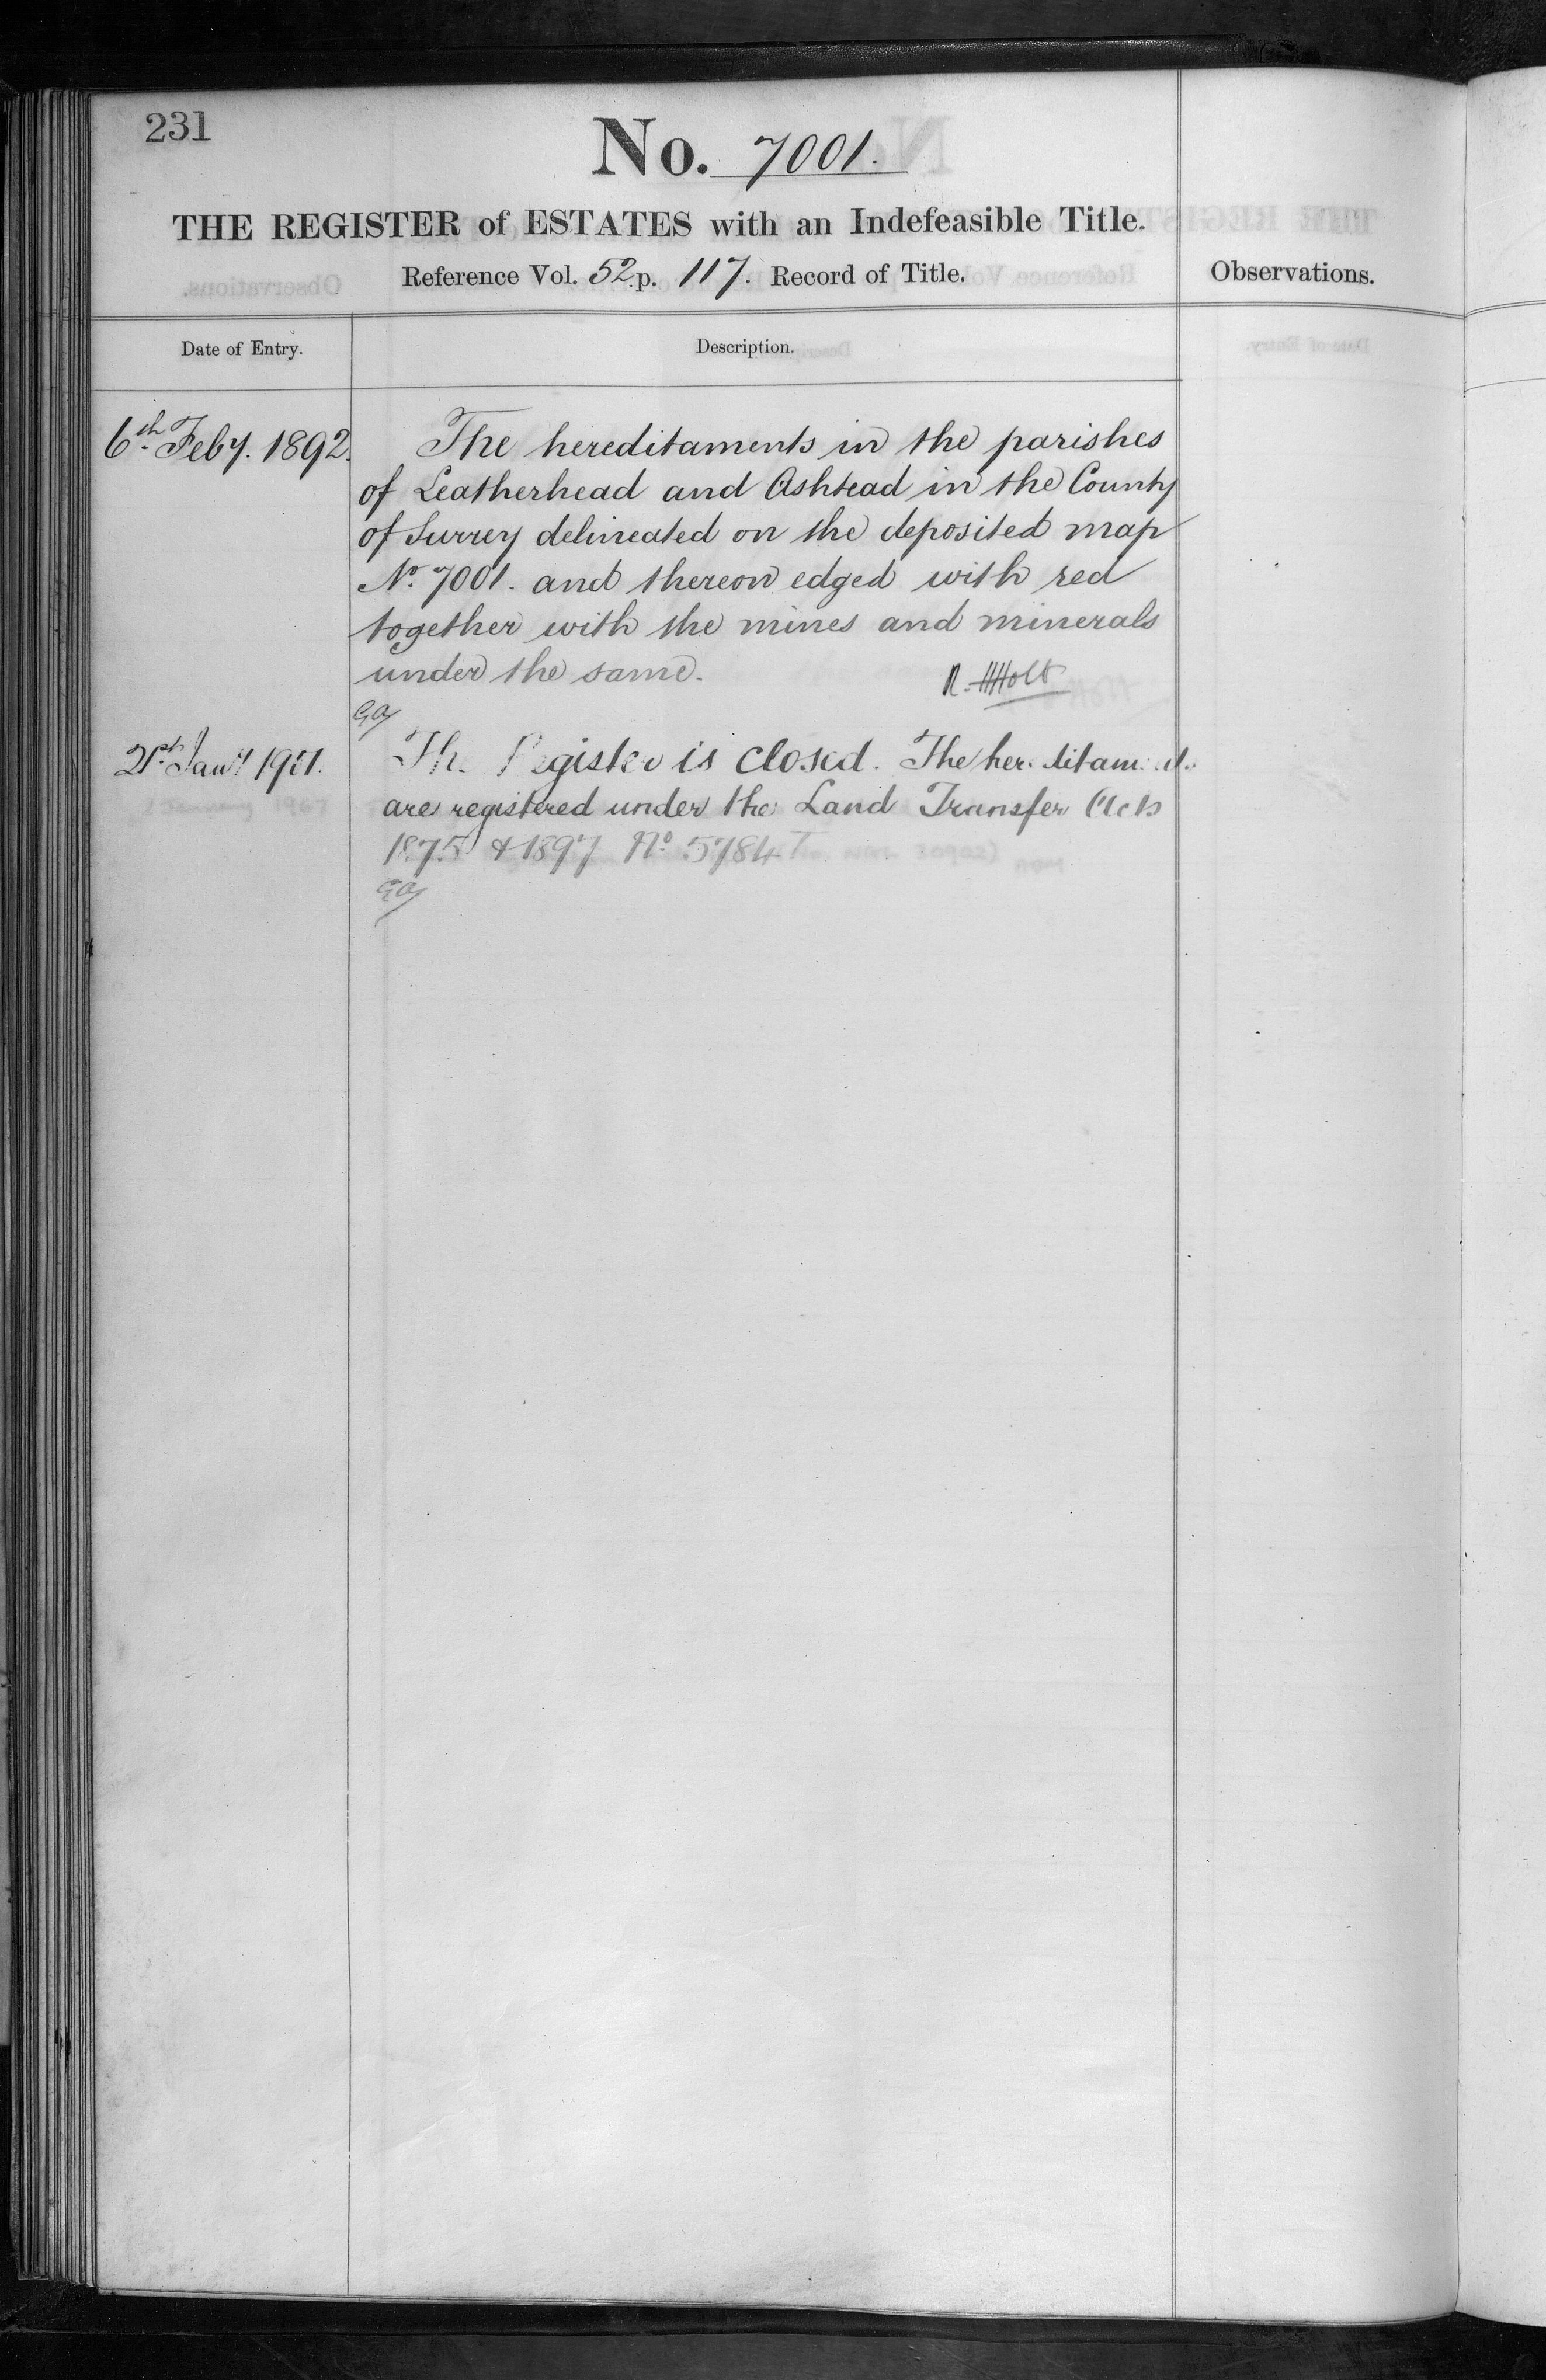 231
No. 7001.
THE REGISTER of ESTATES with an Indefeasible Title.
Reference Vol. 52. p. 117. Record of Title.
Observations.
Date of Entry.
Description.
6th Feby. 1892.
The hereditaments in the parishes
of Leatherhead and Ashtead in the County
of Surrey delineated on the deposited map
No. 7001. and thereon edged with red
together with the mines and minerals
under the same.
R. H Holt
21st Jany 1911.
The Register is closed. The hereditaments
are registered under the Land Transfer Acts
1875 & 1897 No 5784